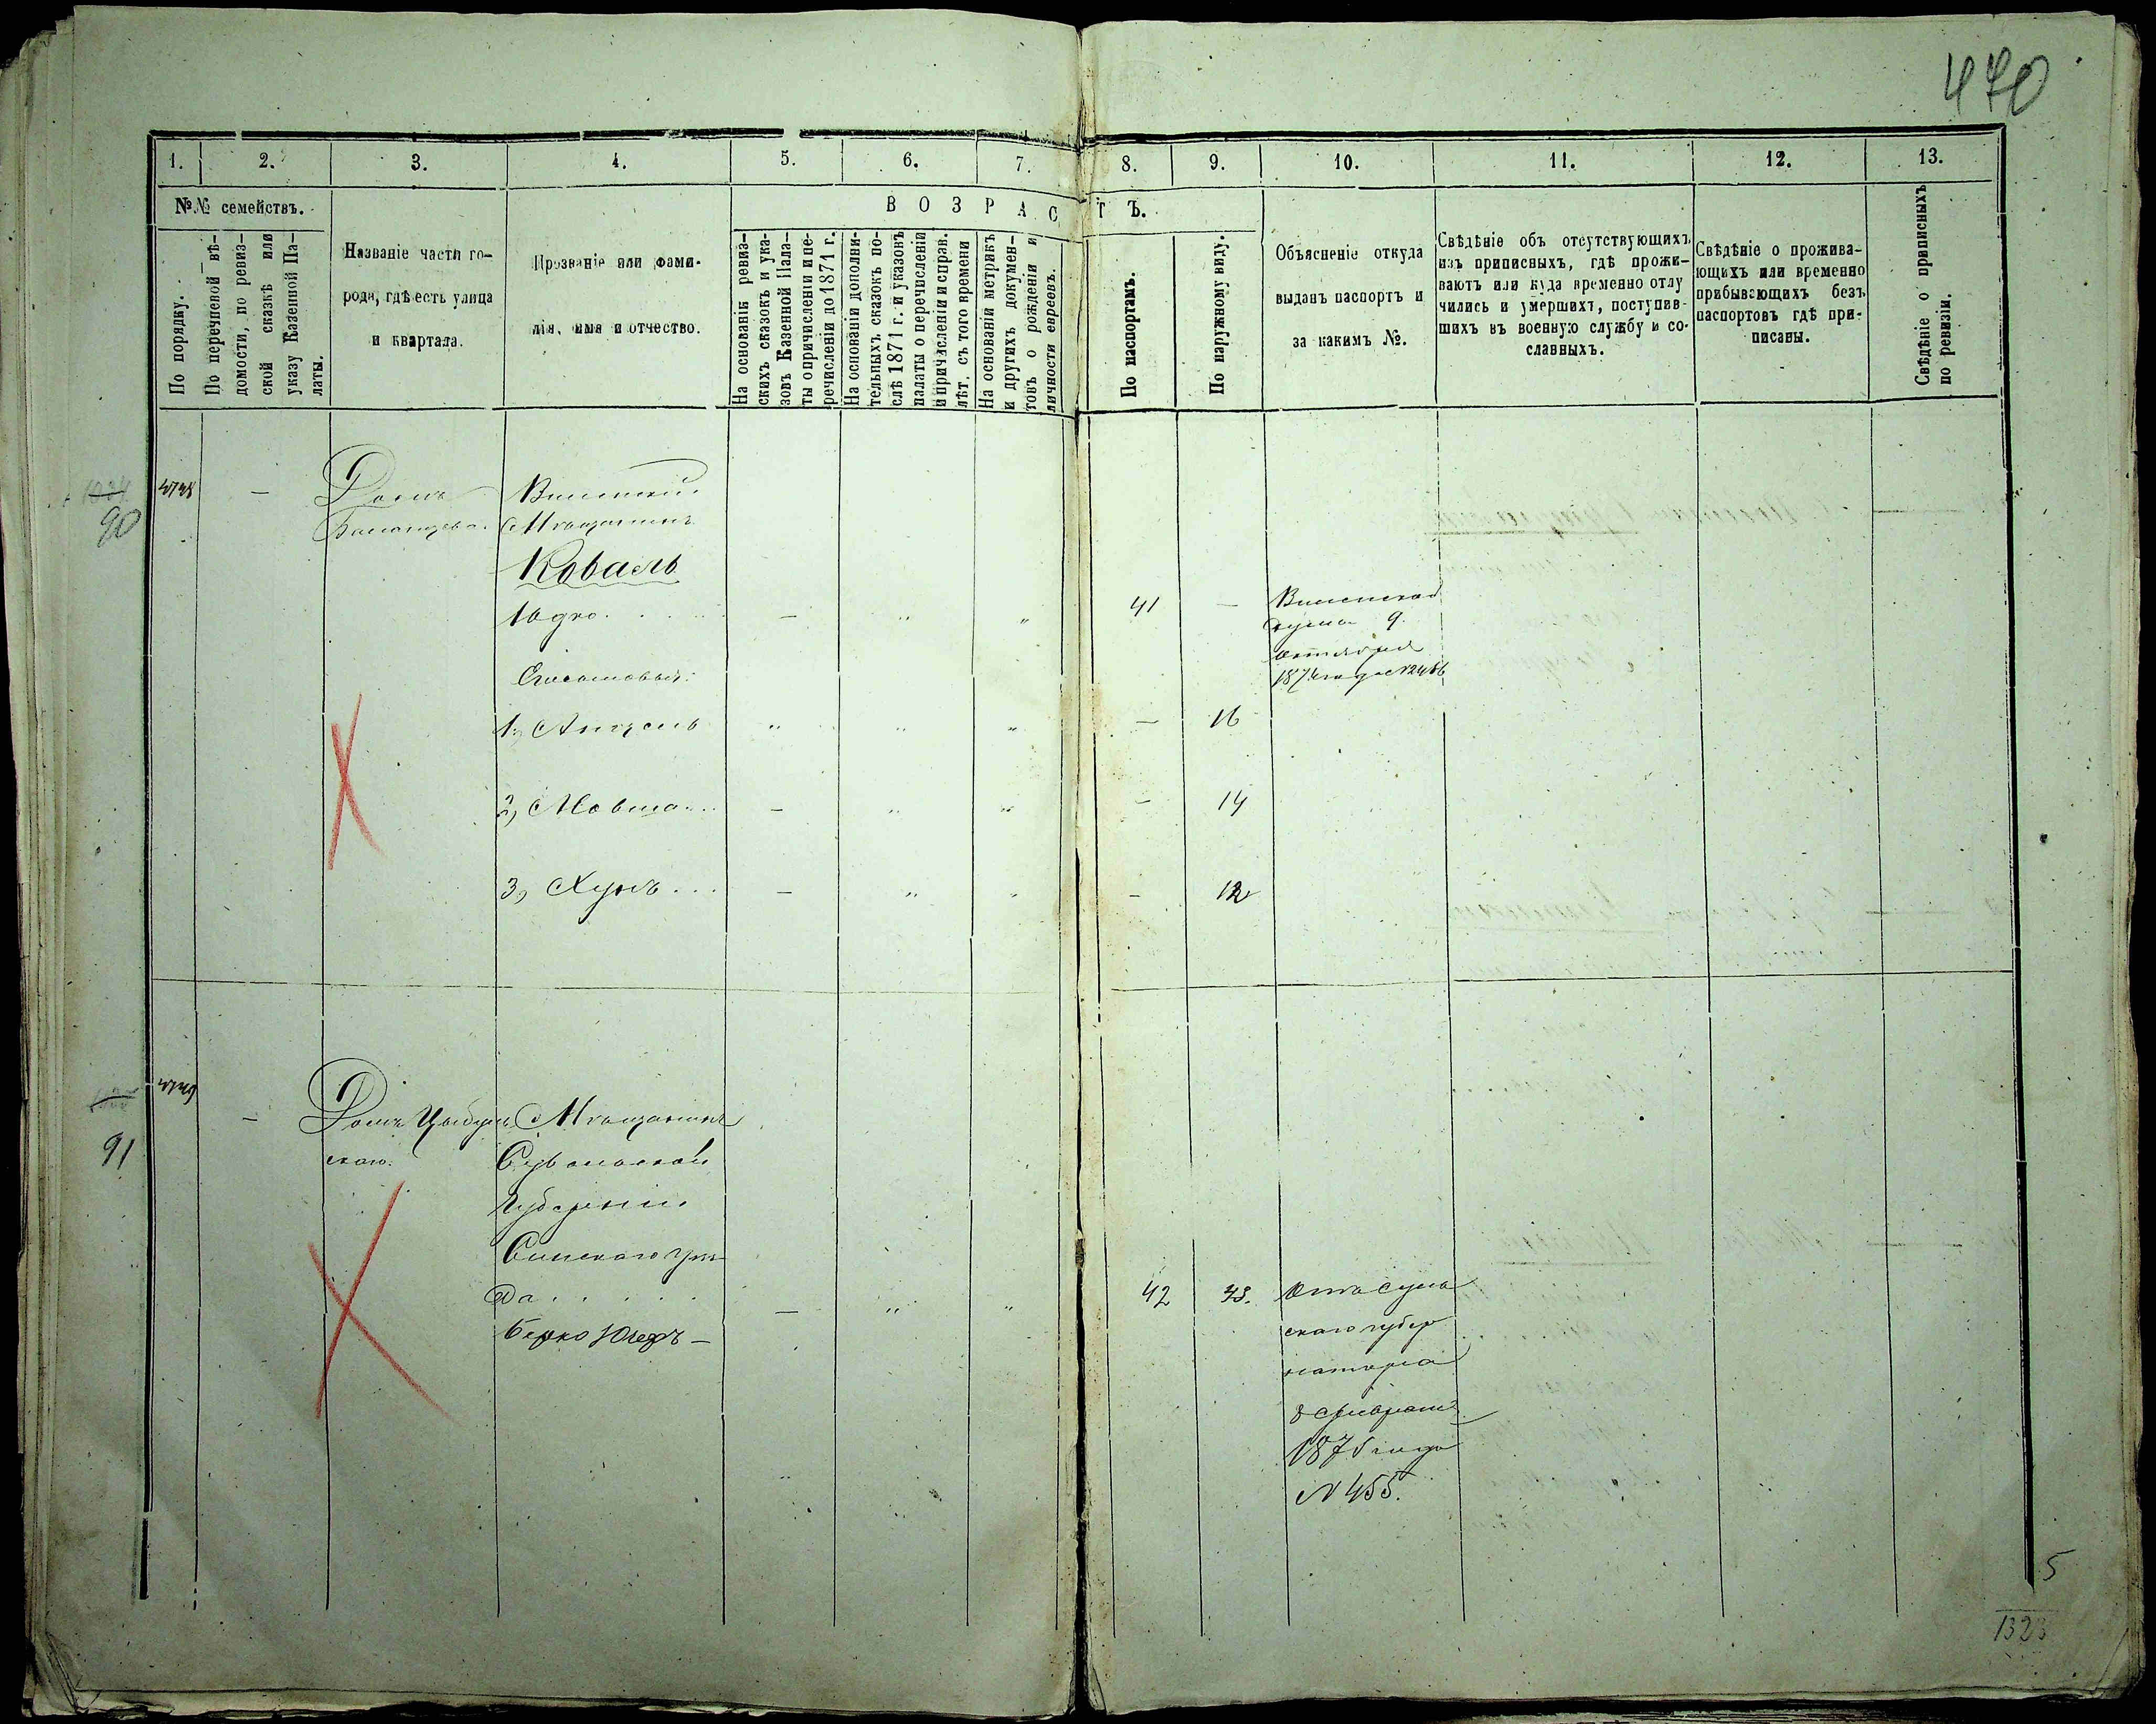 470
1. 2. 3. 4. 5. 6. 7. 8. 9. 10. 11. 12. 13.
№№ семействъ.
ВОЗРАСТЪ.
По порядку.
По перечневой вѣ-
домости, по ревиз-
ской сказкѣ или
указу Казенной Па-
латы.
Названіе части го-
рода, гдѣ есть улица
и квартала.
Прозваніе или фами-
лія, имя и отчество.
На основаніи ревиз-
скихъ сказокъ и ука-
зовъ Казенной Пала-
ты о причисленіи и пе-
речисленіи до 1871 г.
На основаніи дополни-
тельныхъ сказокъ по-
слѣ 1871 г. и указовъ
палаты о перечисленіи
и причисленіи и справ.
лѣт. съ того времени
На основаніи метрикъ
и другихъ докумен-
товъ о рожденіи и
личности евреевъ.
По паспортамъ.
По наружному виду.
Объясненіе откуда
выданъ паспортъ и
за какимъ №.
Свѣдѣніе объ отсутствующихъ
изъ приписныхъ, гдѣ прожи-
ваютъ или куда временно отлу
чились и умершихъ, поступив-
шихъ въ военную службу и со-
сланныхъ.
Свѣдѣніе о прожива-
ющихъ или временно
прибывающихъ безъ
паспортовъ гдѣ при-
писаны.
Свѣдѣніе о приписныхъ
по ревизіи.
90
Домъ
Мѣщанинъ
Коваль
41 — Виленской
Думы 9
октября
1) Анцель — 16
2) Мовша — 14
3) Хунъ — 12
91
Домъ Мѣщанинъ
скаго. Сувалкской
губерніи
да — 42 43.
Берко
скаго губер
натора
8 февраля
1875 года
№ 455.
5
1323